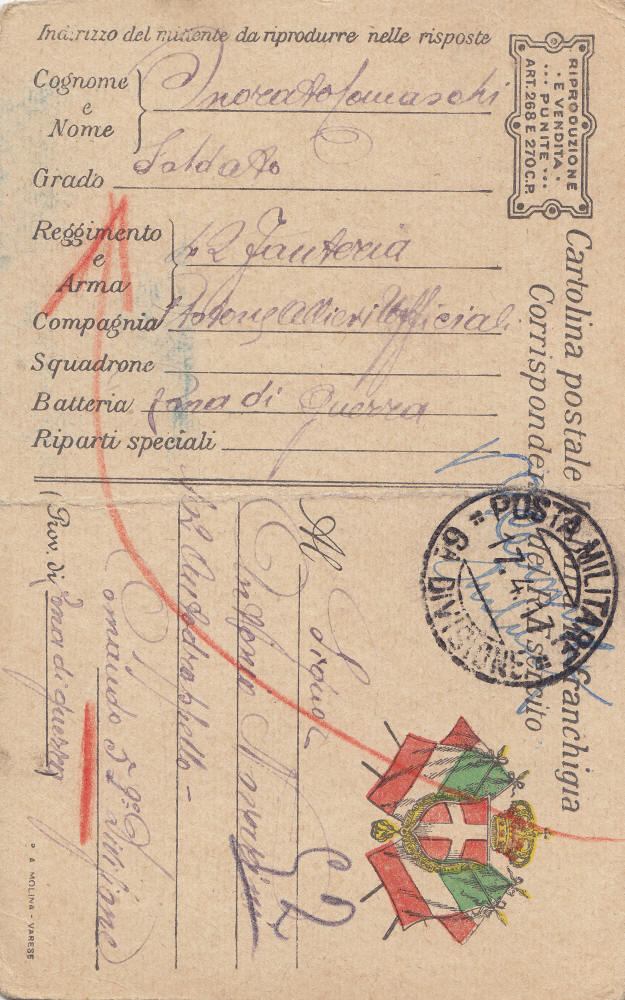 Indirizzo del mittente da riprodurre nelle risposte
Cognome e Nome Onorato Tomaschi
Grado Soldato
Reggimento e Arma 42 Fanteria
Compagnia Plotone Allievi Ufficiali
Squadrone
Batteria Zona di Guerra
Riparti speciali
RIPRODUZIONE
E VENDITA
PUNITE
ART. 268 E 270 C.P.
Cartolina postale in franchigia
Corrispondenza del R. Esercito
POSTA MILITARE
17.4.17
6A DIVISIONE
Al Signor
Comando 52° Divisione
(Prov. di Zona di guerra
P. A. MOLINA - VARESE